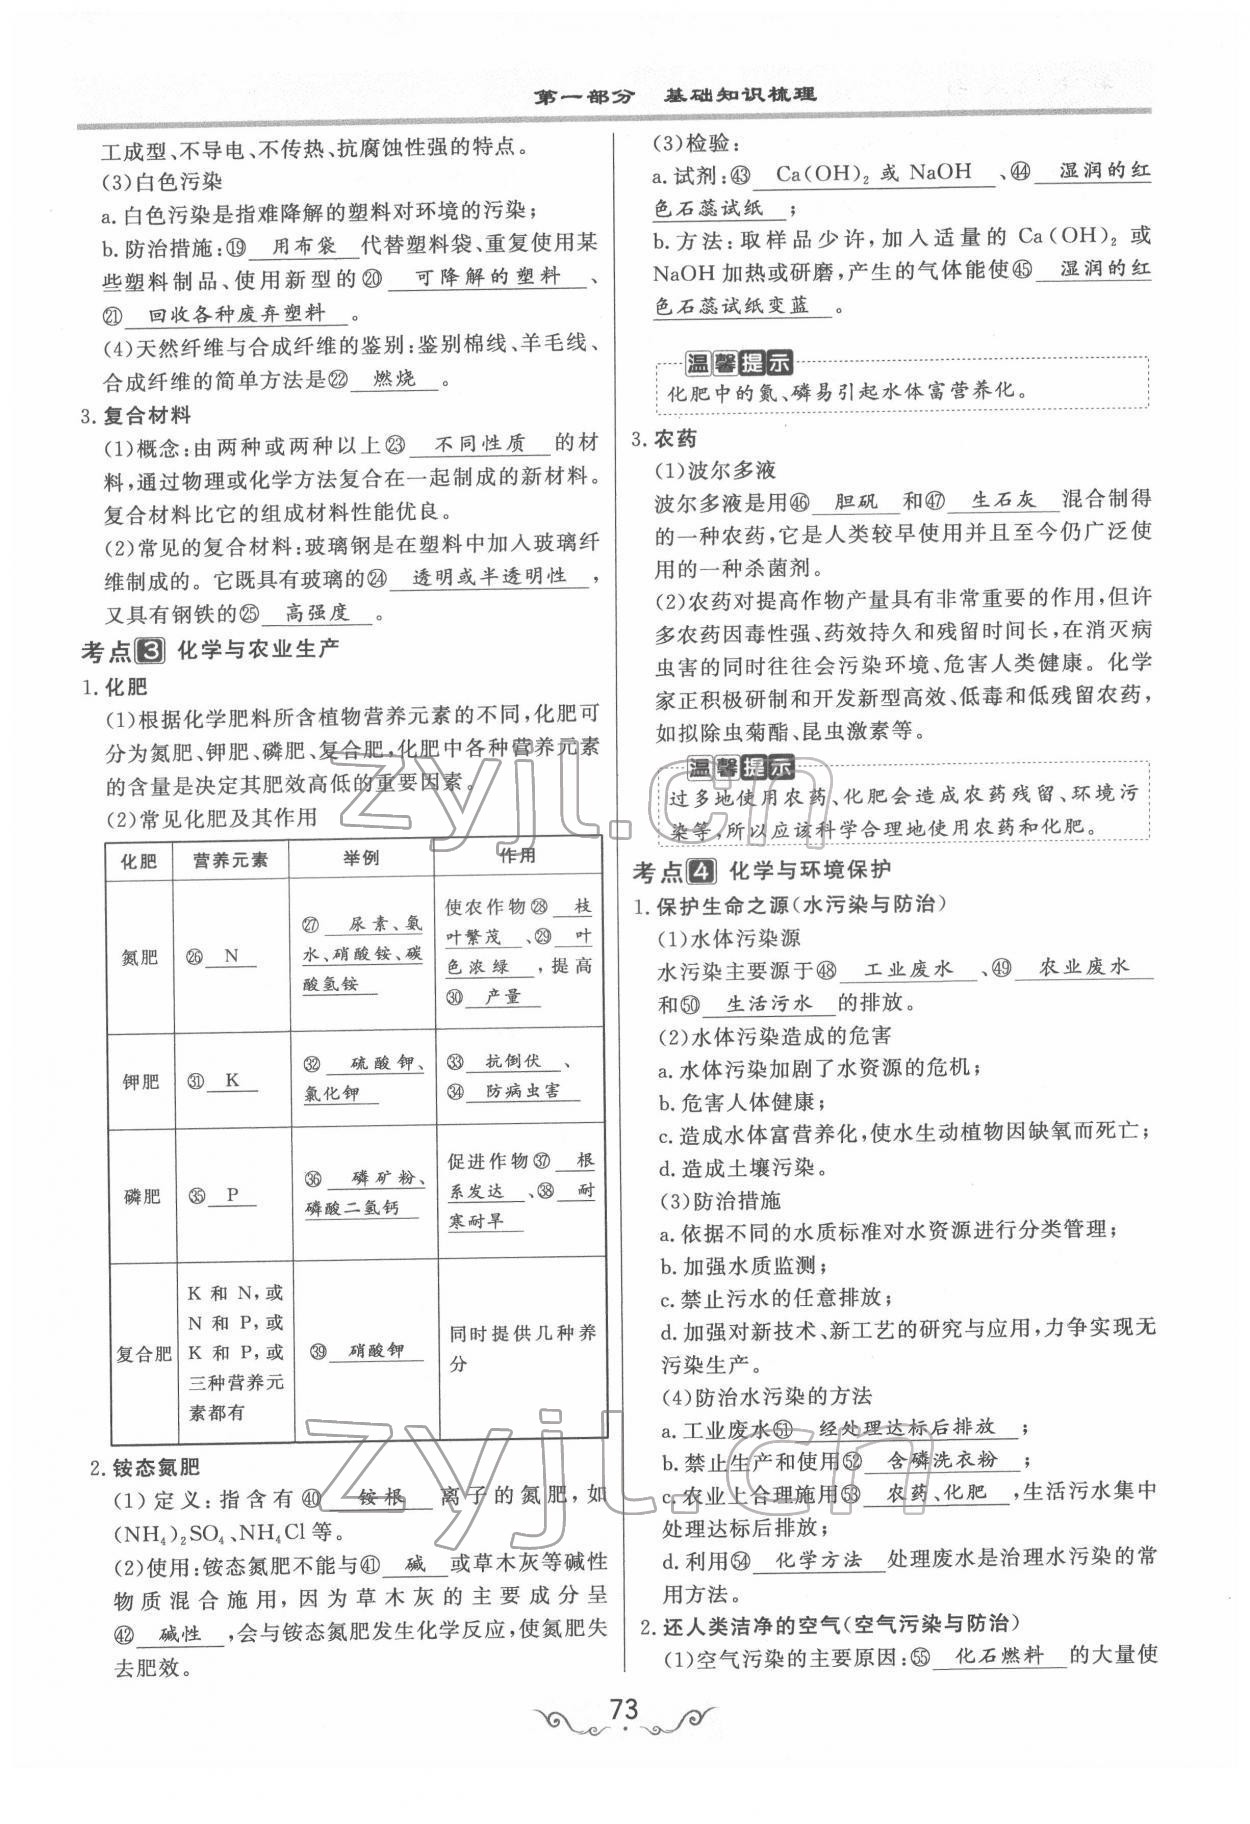 第一部分 基础知识梳理
工成型、不导电、不传热、抗腐蚀性强的特点。
(3)白色污染
a.白色污染是指难降解的塑料对环境的污染;
b.防治措施:⑲ 用布袋 代替塑料袋、重复使用某
些塑料制品、使用新型的⑳ 可降解的塑料 、
㉑ 回收各种废弃塑料 。
(4)天然纤维与合成纤维的鉴别:鉴别棉线、羊毛线、
合成纤维的简单方法是㉒ 燃烧 。
3.复合材料
(1)概念:由两种或两种以上㉓ 不同性质 的材
料,通过物理或化学方法复合在一起制成的新材料。
复合材料比它的组成材料性能优良。
(2)常见的复合材料:玻璃钢是在塑料中加入玻璃纤
维制成的。它既具有玻璃的㉔ 透明或半透明性 ,
又具有钢铁的㉕ 高强度 。
考点3 化学与农业生产
1.化肥
(1)根据化学肥料所含植物营养元素的不同,化肥可
分为氮肥、钾肥、磷肥、复合肥,化肥中各种营养元素
的含量是决定其肥效高低的重要因素。
(2)常见化肥及其作用
化肥 营养元素 举例 作用
氮肥
㉖ N
㉗ 尿素、氨
水、硝酸铵、碳
酸氢铵
使农作物㉘ 枝
叶繁茂 、㉙ 叶
色浓绿 ,提高
㉚ 产量
钾肥
㉛ K
㉜ 硫酸钾、
氯化钾
㉝ 抗倒伏 、
㉞ 防病虫害
磷肥
㉟ P
㊱ 磷矿粉、
磷酸二氢钙
促进作物㊲ 根
系发达 、㊳ 耐
寒耐旱
复合肥
K 和 N,或
N 和 P,或
K 和 P,或
三种营养元
素都有
㊴ 硝酸钾
同时提供几种养
分
2.铵态氮肥
(1)定义:指含有㊵ 铵根 离子的氮肥,如
(NH₄)₂SO₄、NH₄Cl等。
(2)使用:铵态氮肥不能与㊶ 碱 或草木灰等碱性
物质混合施用,因为草木灰的主要成分呈
㊷ 碱性 ,会与铵态氮肥发生化学反应,使氮肥失
去肥效。
(3)检验:
a.试剂:㊸ Ca(OH)₂ 或 NaOH 、㊹ 湿润的红
色石蕊试纸 ;
b.方法:取样品少许,加入适量的 Ca(OH)₂ 或
NaOH加热或研磨,产生的气体能使㊺ 湿润的红
色石蕊试纸变蓝 。
温馨提示
化肥中的氮、磷易引起水体富营养化。
3.农药
(1)波尔多液
波尔多液是用㊻ 胆矾 和㊼ 生石灰 混合制得
的一种农药,它是人类较早使用并且至今仍广泛使
用的一种杀菌剂。
(2)农药对提高作物产量具有非常重要的作用,但许
多农药因毒性强、药效持久和残留时间长,在消灭病
虫害的同时往往会污染环境、危害人类健康。化学
家正积极研制和开发新型高效、低毒和低残留农药,
如拟除虫菊酯、昆虫激素等。
温馨提示
过多地使用农药、化肥会造成农药残留、环境污
染等,所以应该科学合理地使用农药和化肥。
考点4 化学与环境保护
1.保护生命之源(水污染与防治)
(1)水体污染源
水污染主要源于㊽ 工业废水 、㊾ 农业废水
和㊿ 生活污水 的排放。
(2)水体污染造成的危害
a.水体污染加剧了水资源的危机;
b.危害人体健康;
c.造成水体富营养化,使水生动植物因缺氧而死亡;
d.造成土壤污染。
(3)防治措施
a.依据不同的水质标准对水资源进行分类管理;
b.加强水质监测;
c.禁止污水的任意排放;
d.加强对新技术、新工艺的研究与应用,力争实现无
污染生产。
(4)防治水污染的方法
a.工业废水51 经处理达标后排放 ;
b.禁止生产和使用52 含磷洗衣粉 ;
c.农业上合理施用53 农药、化肥 ,生活污水集中
处理达标后排放;
d.利用54 化学方法 处理废水是治理水污染的常
用方法。
2.还人类洁净的空气(空气污染与防治)
(1)空气污染的主要原因:55 化石燃料 的大量使
73
zyjl.cn
zyjl.cn